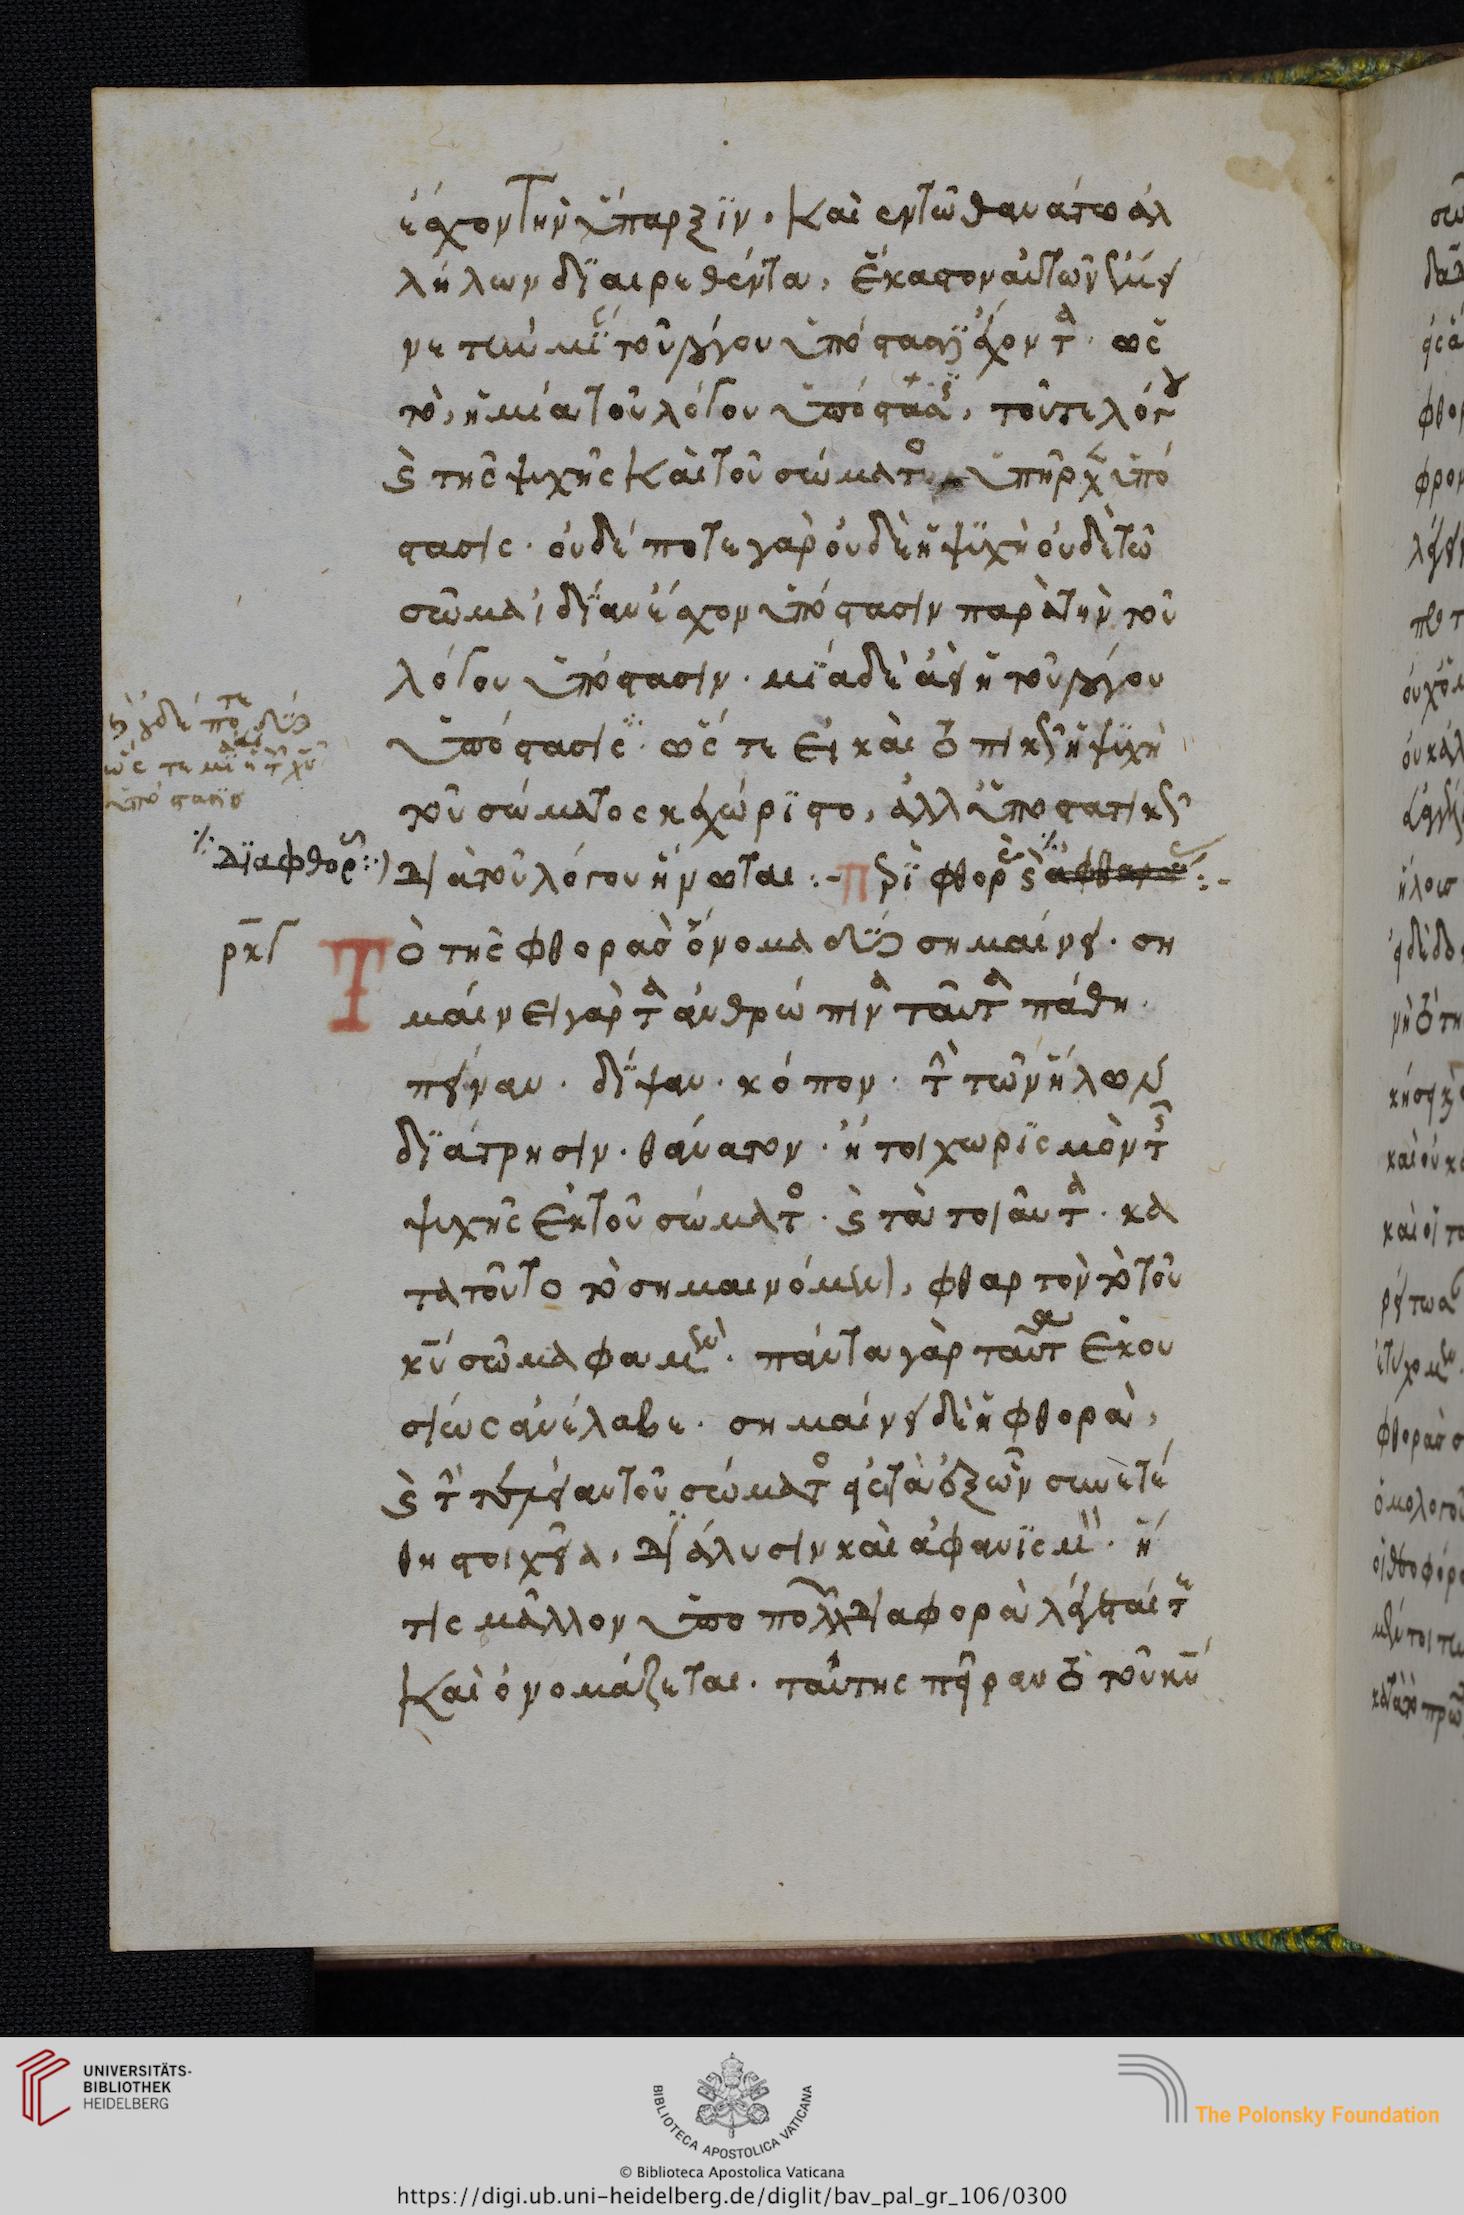 ἔσχον τὴν ὕπαρξιν. καὶ ἐν τῶ θανάτω ἀλ
λήλων διαιρεθέντα, ἕκαστον αὐτῶν ἔμει
νε τὴν μίαν τοῦ λόγου ὑπόστασιν ἔχοντα. ὥσ
τε, ἡ μία τοῦ λόγου ὑπόστασις, τοῦ τε λόγου
καὶ τῆς ψυχῆς καὶ τοῦ σώματος ὑπῆρχεν ὑπό
στασις. οὐδέποτε γὰρ οὐδὲ ἡ ψυχὴ οὐδὲ τὸ
σῶμα ἰδίαν ἔσχον ὑπόστασιν παρὰ τὴν τοῦ
λόγου ὑπόστασιν. μία δὲ ἀεὶ ἡ τοῦ λόγου
ὑπόστασις. ὥστε εἰ καὶ τοπικῶς ἡ ψυχὴ
τοῦ σώματος κεχώριστο, ἀλλ' ὑποστατικῶς
διὰ τοῦ λόγου ἥνωται :- περὶ φθορᾶς καὶ ἀφθαρσίας :-
καὶ οὐδέποτε δύο
ὥστε μία ἀεὶ ἡ τοῦ χυ
ὑπόστασις
διαφθορᾶς :)
ρκγ
Τὸ τῆς φθορᾶς ὄνομα δύο σημαίνει. ση
μαίνει γὰρ τὰ ἀνθρώπινα ταῦτα πάθη.
πείναν. δίψαν. κόπον. τὴν τῶν ἥλων
διάτρησιν. θάνατον. ἤτοι χωρισμὸν τῆς
ψυχῆς ἐκ τοῦ σώματος. καὶ τὰ τοιαῦτα. κα
τὰ τοῦτο τὸ σημαινόμενον, φθαρτὸν τὸ τοῦ
κυ σῶμα φαμέν. πάντα γὰρ ταῦτα ἑκου
σίως ἀνέλαβε. σημαίνει δὲ ἡ φθορὰ,
καὶ τὴν τελείαν τοῦ σώματος εἰς τὰ ἐξ ὧν συνετέ
θη στοιχεῖα, διάλυσιν καὶ ἀφανισμόν. ἥ
τις μᾶλλον ὑπὸ πολλῶν διαφορὰ λέγεταί τε
καὶ ὀνομάζεται. ταύτης πεῖραν τὸ τοῦ κυ
UNIVERSITÄTS-
BIBLIOTHEK
HEIDELBERG
BIBLIOTECA APOSTOLICA VATICANA
© Biblioteca Apostolica Vaticana
The Polonsky Foundation
https://digi.ub.uni-heidelberg.de/diglit/bav_pal_gr_106/0300